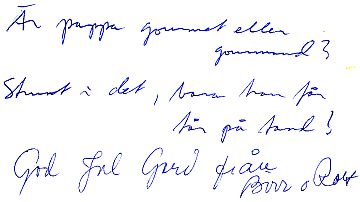 Är pappa gourmet eller
gourmand?
Strunt i det, bara han får
tår på tand!
God Jul Gard från
o Rolf